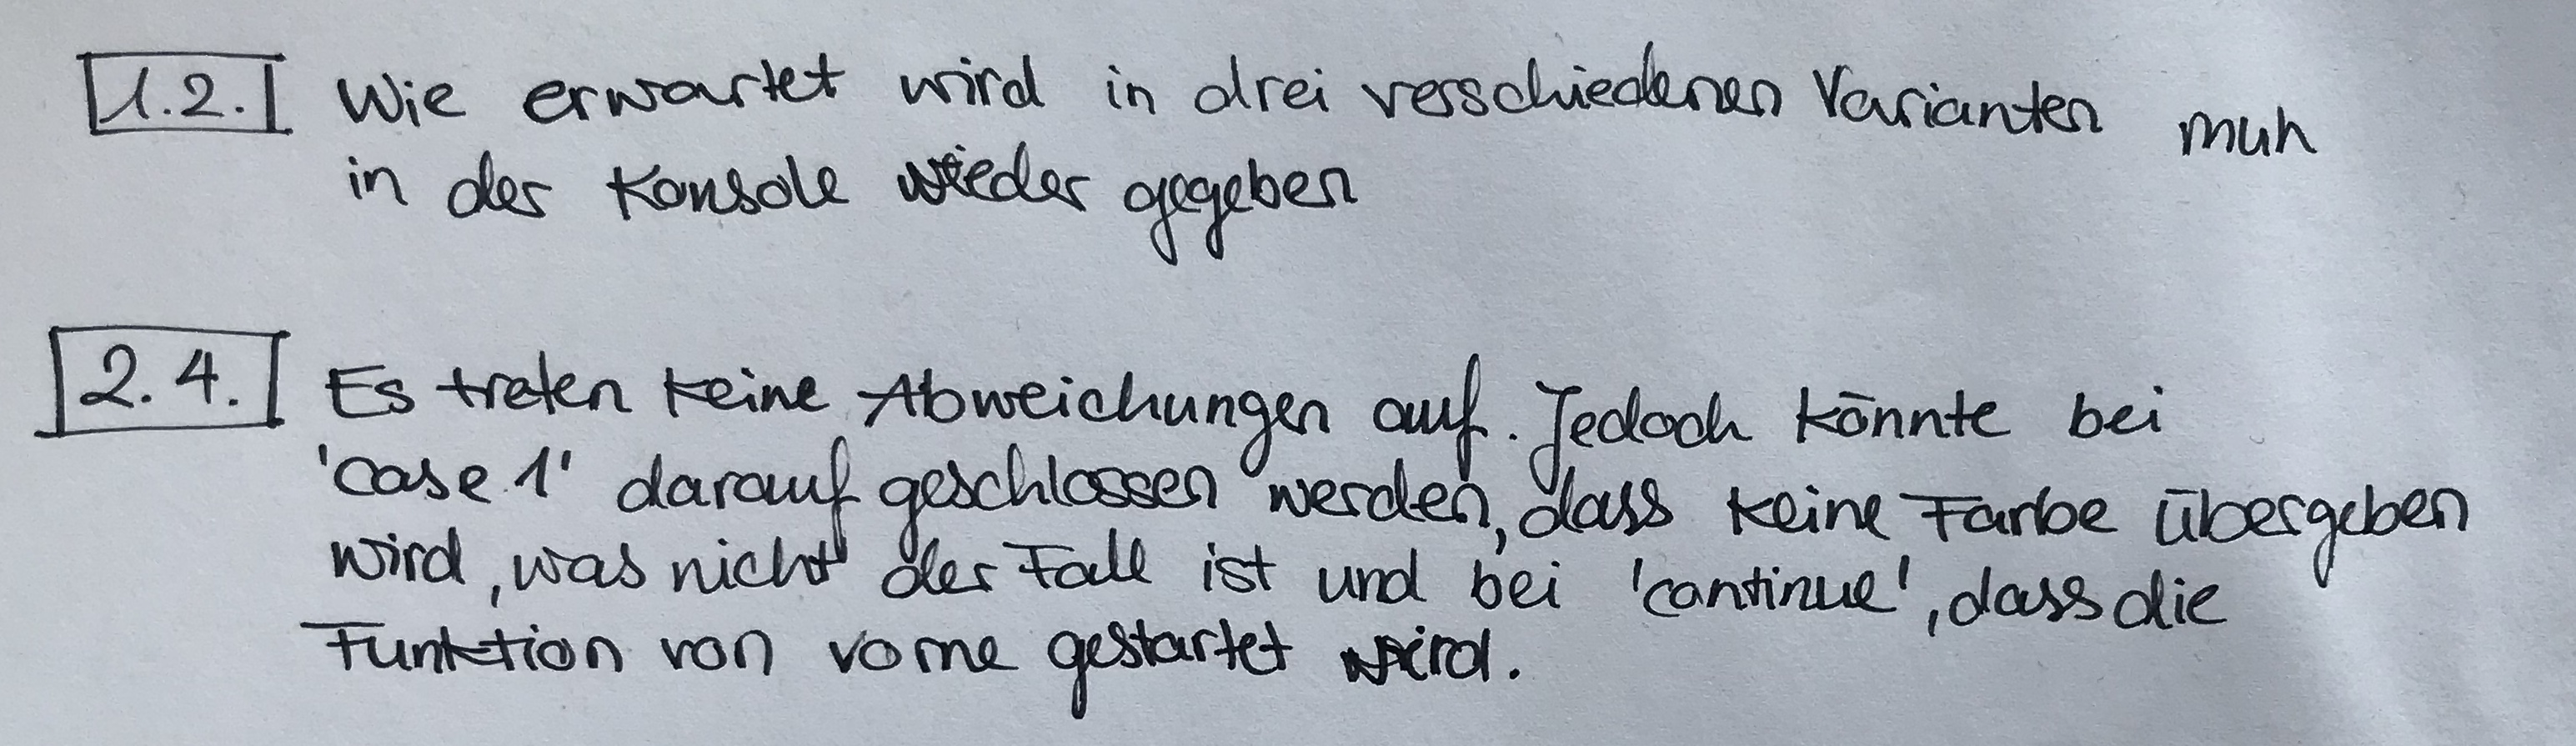 1.2. Wie erwartet wird in drei verschiedenen Varianten muh
in der Konsole wieder gegeben
2.4. Es treten keine Abweichungen auf. Jedoch könnte bei
'case 1' darauf geschlossen werden, dass keine Farbe übergeben
wird, was nicht der Fall ist und bei 'continue', dass die
Funktion von vorne gestartet wird.